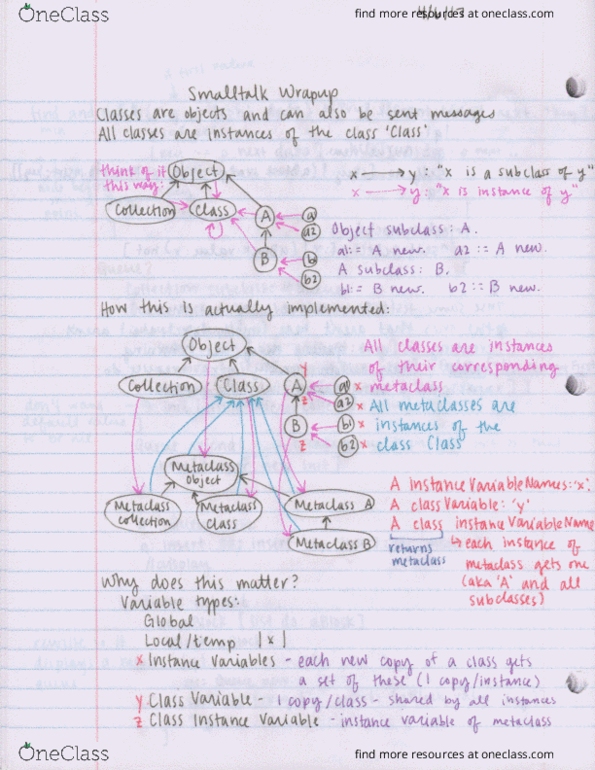 OneClass
find more resources at oneclass.com
Smalltalk Wrapup
Classes are objects and can also be sent messages
All classes are instances of the class 'Class'
think of it
this way:
Object
Collection
Class
A
a1
a2
B
b1
b2
x → y : "x is a subclass of y"
x → y : "x is instance of y"
Object subclass: A.
a1:= A new. a2 := A new.
A subclass: B.
b1:= B new. b2 := B new.
How this is actually implemented:
Object
Collection
Class
y
A
z
B
z
a1 x
a2 x
b1 x
b2 x
All classes are instances
of their corresponding
metaclass
All metaclasses are
instances of the
class Class
Metaclass
Object
Metaclass
collection
Metaclass
class
Metaclass A
Metaclass B
A instanceVariableNames: 'x'.
A classVariable: 'y'
A class instanceVariableName
returns
metaclass
↳ each instance of
metaclass gets one
(aka 'A' and all
subclasses)
Why does this matter?
Variable types:
Global
Local/temp |x|
x Instance Variables - each new copy of a class gets
a set of these (1 copy/instance)
y Class Variable - 1 copy/class - shared by all instances
z Class Instance Variable - instance variable of metaclass
OneClass
find more resources at oneclass.com